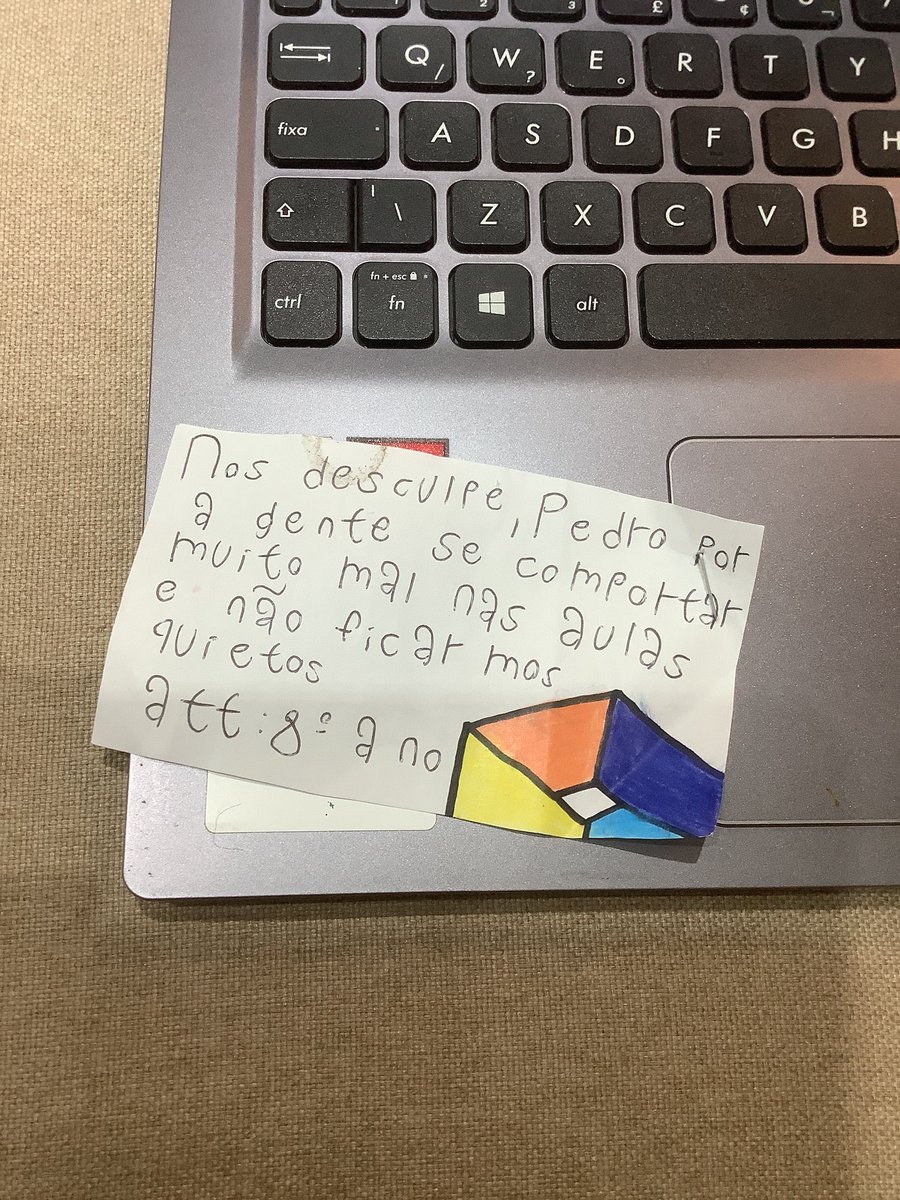 2 3 £ ¢ ¬
Q / W ? E ° R T Y
fixa A S D F G H
| \ Z X C V B
ctrl fn + esc fn alt
Nos desculpe, Pedro por
a gente se comportar
muito mal nas aulas
e não ficarmos
quietos
att: 8º ano